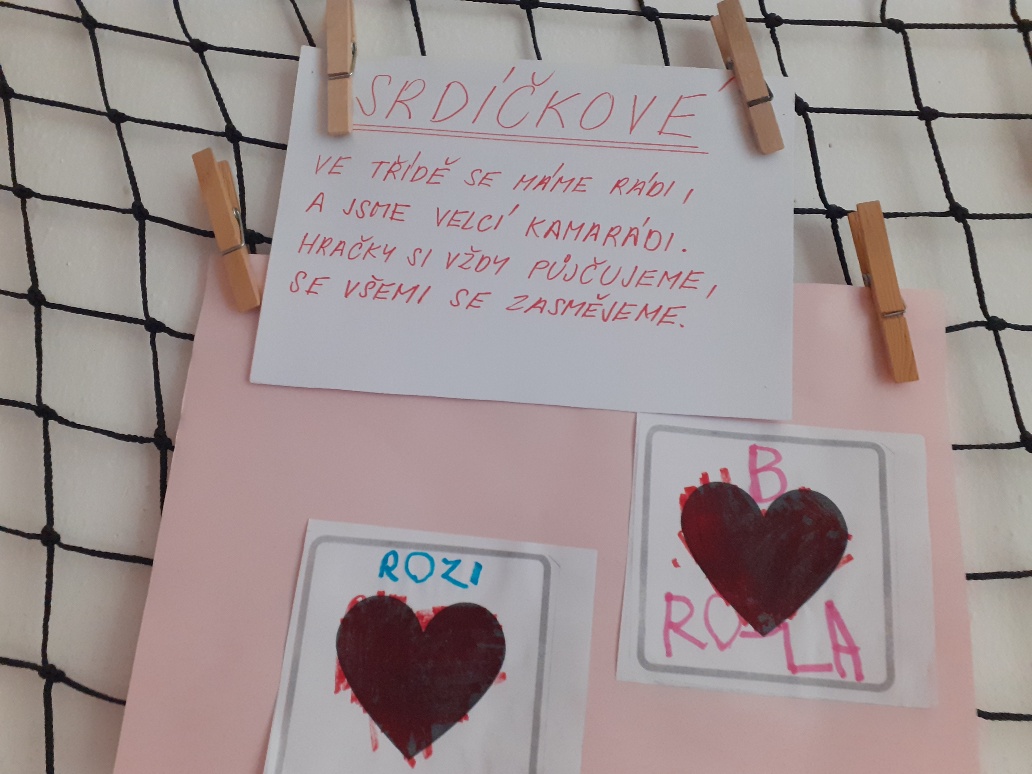 SRDÍČKOVÉ
VE TŘÍDĚ SE MÁME RÁDI,
A JSME VELCÍ KAMARÁDI.
HRAČKY SI VŽDY PŮJČUJEME,
SE VŠEMI SE ZASMĚJEME.
B
ROZI
LA